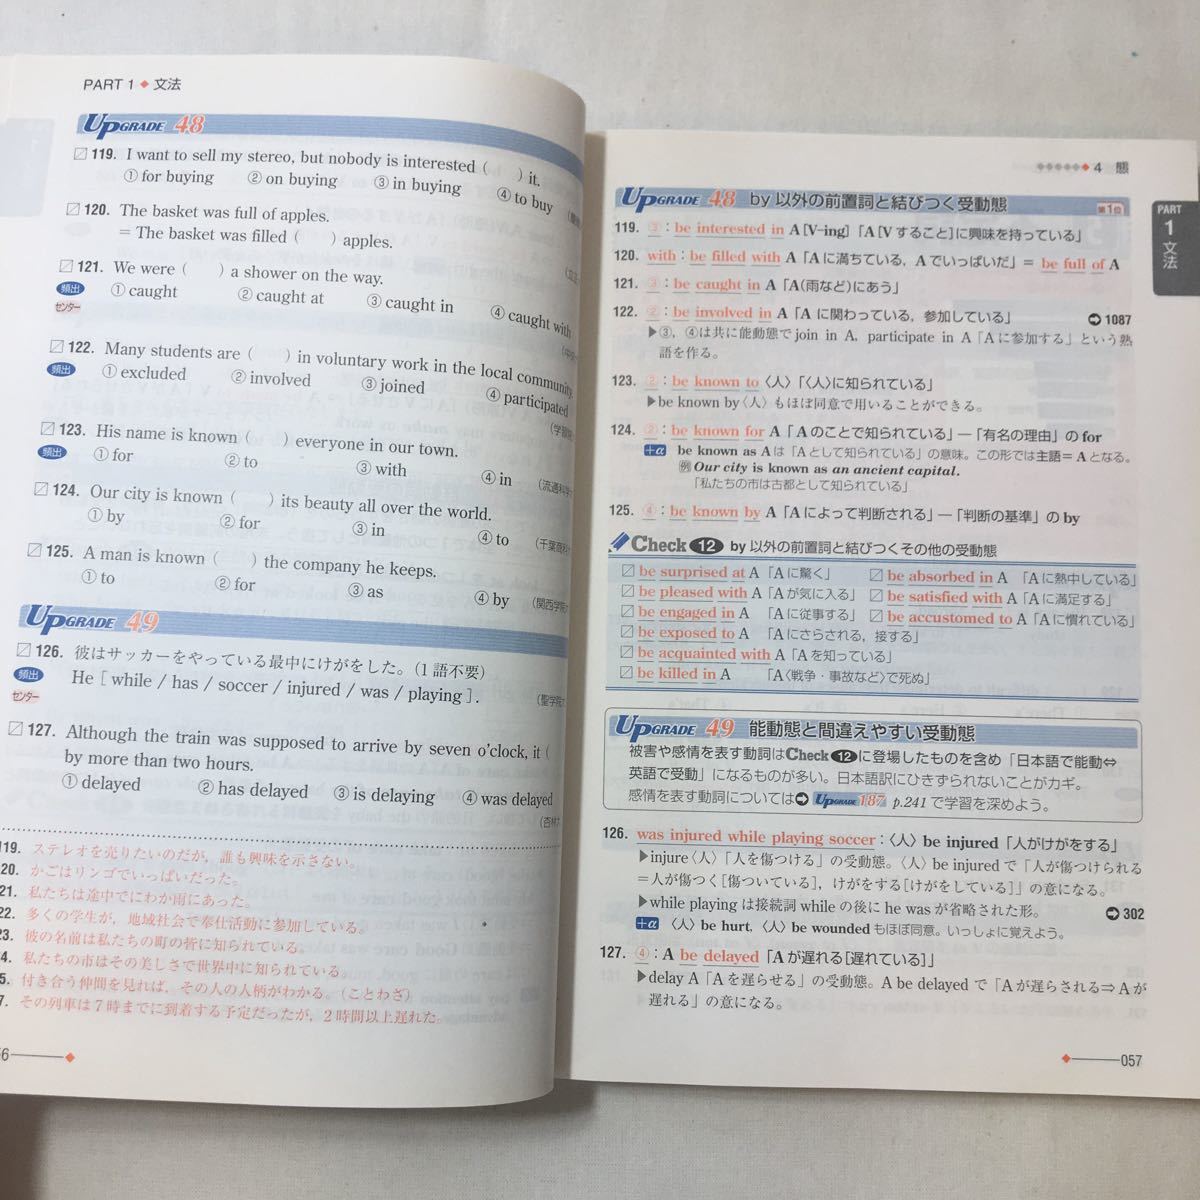 PART 1 ◆ 文法
UPGRADE 48
119. I want to sell my stereo, but nobody is interested (　　) it.
① for buying ② on buying ③ in buying ④ to buy
120. The basket was full of apples.
= The basket was filled (　　) apples.
121. We were (　　) a shower on the way.
頻出 センター
① caught ② caught at ③ caught in ④ caught with
122. Many students are (　　) in voluntary work in the local community.
頻出
① excluded ② involved ③ joined ④ participated
123. His name is known (　　) everyone in our town.
頻出
① for ② to ③ with ④ in
(流通科学
124. Our city is known (　　) its beauty all over the world.
① by ② for ③ in ④ to
(千葉商科
125. A man is known (　　) the company he keeps.
① to ② for ③ as ④ by
(関西学院
UPGRADE 49
126. 彼はサッカーをやっている最中にけがをした。(1語不要)
頻出 センター
He [ while / has / soccer / injured / was / playing ].
(聖学院
127. Although the train was supposed to arrive by seven o'clock, it (
by more than two hours.
① delayed ② has delayed ③ is delaying ④ was delayed
(杏林
119. ステレオを売りたいのだが，誰も興味を示さない。
20. かごはリンゴでいっぱいだった。
21. 私たちは途中でにわか雨にあった。
22. 多くの学生が，地域社会で奉仕活動に参加している。
23. 彼の名前は私たちの町の皆に知られている。
4. 私たちの市はその美しさで世界中に知られている。
5. 付き合う仲間を見れば，その人の人柄がわかる。(ことわざ)
7. その列車は7時までに到着する予定だったが，2時間以上遅れた。
6
◆◆◆◆◆◆ 4 態
PART 1 文法
UPGRADE 48 by 以外の前置詞と結びつく受動態 第1位
119. ③：be interested in A [V-ing]「A [Vすること]に興味を持っている」
120. with：be filled with A「Aに満ちている，Aでいっぱいだ」= be full of A
121. ③：be caught in A「A(雨など)にあう」
122. ②：be involved in A「Aに関わっている，参加している」 ➔ 1087
▶③，④は共に能動態で join in A, participate in A「Aに参加する」という熟
語を作る。
123. ②：be known to〈人〉「〈人〉に知られている」
▶be known by〈人〉もほぼ同意で用いることができる。
124. ②：be known for A「Aのことで知られている」―「有名の理由」の for
+α be known as A は「Aとして知られている」の意味。この形では主語=Aとなる。
例 Our city is known as an ancient capital.
「私たちの市は古都として知られている」
125. ④：be known by A「Aによって判断される」―「判断の基準」の by
Check 12 by 以外の前置詞と結びつくその他の受動態
be surprised at A「Aに驚く」 be absorbed in A「Aに熱中している」
be pleased with A「Aが気に入る」 be satisfied with A「Aに満足する」
be engaged in A「Aに従事する」 be accustomed to A「Aに慣れている」
be exposed to A「Aにさらされる，接する」
be acquainted with A「Aを知っている」
be killed in A「A〈戦争・事故など〉で死ぬ」
UPGRADE 49 能動態と間違えやすい受動態
被害や感情を表す動詞は Check 12 に登場したものを含め「日本語で能動⇔
英語で受動」になるものが多い。日本語訳にひきずられないことがカギ。
感情を表す動詞については ➔ UPGRADE 187 p.241 で学習を深めよう。
126. was injured while playing soccer：〈人〉be injured「人がけがをする」
▶injure〈人〉「人を傷つける」の受動態。〈人〉be injured で「人が傷つけられる
=人が傷つく[傷ついている]，けがをする[けがをしている]」の意になる。
▶while playing は接続詞 while の後に he was が省略された形。 ➔ 302
+α 〈人〉be hurt, 〈人〉be wounded もほぼ同意。いっしょに覚えよう。
127. ④：A be delayed「Aが遅れる[遅れている]」
▶delay A「Aを遅らせる」の受動態。A be delayed で「Aが遅らされる⇒Aが
遅れる」の意になる。
057